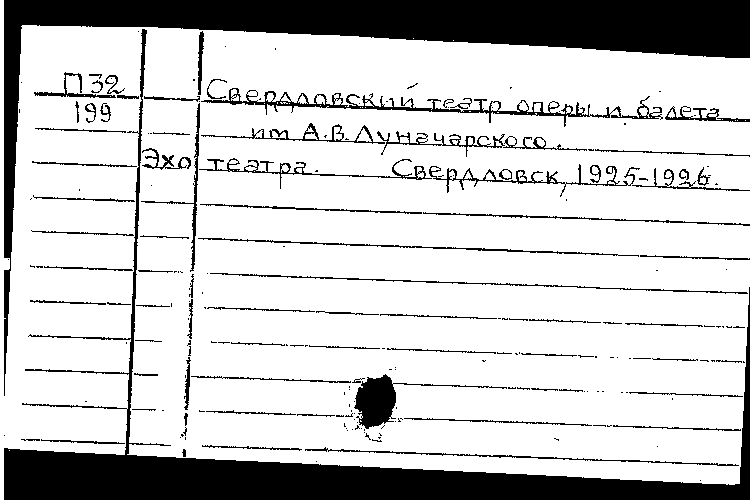 П32 Свердловский театр оперы и балета
199 им А.В.Луначарского.
Эхо театра. Свердловск, 1925-1926.